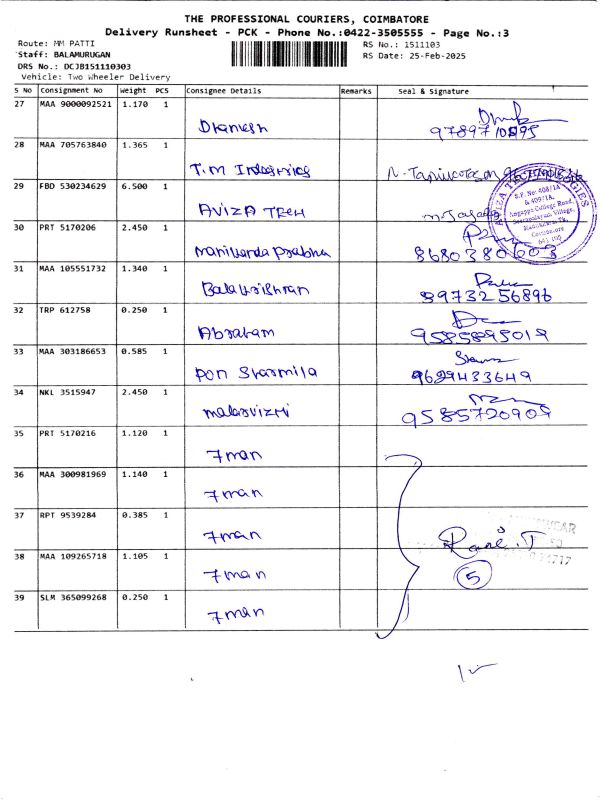 THE PROFESSIONAL COURIERS, COIMBATORE
Delivery Runsheet - PCK - Phone No.:0422-3505555 - Page No.:3
Route: MM PATTI
RS No.: 1511103
Staff: BALAMURUGAN
RS Date: 25-Feb-2025
DRS No.: DCJB151110303
Vehicle: Two Wheeler Delivery
S No Consignment No Weight PCS Consignee Details Remarks Seal & Signature
27 MAA 9000092521 1.170 1
Dhanesh
28 MAA 705763840 1.365 1
T.M Industries
29 FBD 530234629 6.500 1
AVIZA TECH
S.F. No: 408/1A
& 409/1A,
Nagappa College Road,
30 PRT 5170206 2.450 1
Manivanda Prabhu 8680380603
31 MAA 105551732 1.340 1
Balakrishnan 8973256896
32 TRP 612758 0.250 1
Abraham 9585895019
33 MAA 303186653 0.585 1
Pon Sharmila 9629433649
34 NKL 3515947 2.450 1
Malarvizhi 9585720909
35 PRT 5170216 1.120 1
7man
36 MAA 300981969 1.140 1
7man
37 RPT 9539284 0.385 1
7man
38 MAA 109265718 1.105 1
7man 5
39 SLM 365099268 0.250 1
7man